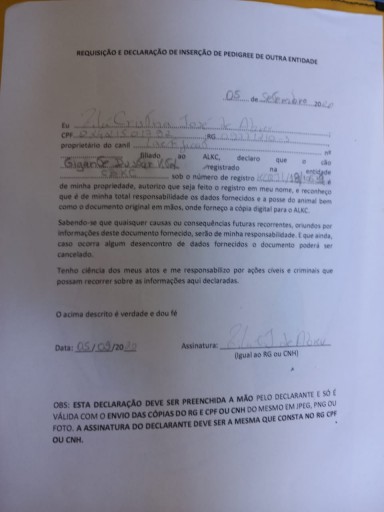 REQUISIÇÃO E DECLARAÇÃO DE INSERÇÃO DE PEDIGREE DE OUTRA ENTIDADE
05 de Setembro 20
Eu Cristina José de Abreu
CPF RG
proprietário do canil nº
filiado ao ALKC, declaro que o cão
registrado na entidade
sob o número de registro e
de minha propriedade, autorizo que seja feito o registro em meu nome, e reconheço
que é de minha total responsabilidade os dados fornecidos e a posse do animal bem
como o documento original em mãos, onde forneço a cópia digital para o ALKC.
Sabendo-se que quaisquer causas ou consequências futuras recorrentes, oriundos por
informações deste documento fornecido, serão de minha responsabilidade. E que ainda,
caso ocorra algum desencontro de dados fornecidos o documento poderá ser
cancelado.
Tenho ciência dos meus atos e me responsabilizo por ações cíveis e criminais que
possam recorrer sobre as informações aqui declaradas.
O acima descrito é verdade e dou fé
Data: 05/09/20 Assinatura: de Abreu
(Igual ao RG ou CNH)
OBS: ESTA DECLARAÇÃO DEVE SER PREENCHIDA A MÃO PELO DECLARANTE E SÓ É
VÁLIDA COM O ENVIO DAS CÓPIAS DO RG E CPF OU CNH DO MESMO EM JPEG, PNG OU
FOTO. A ASSINATURA DO DECLARANTE DEVE SER A MESMA QUE CONSTA NO RG CPF
OU CNH.